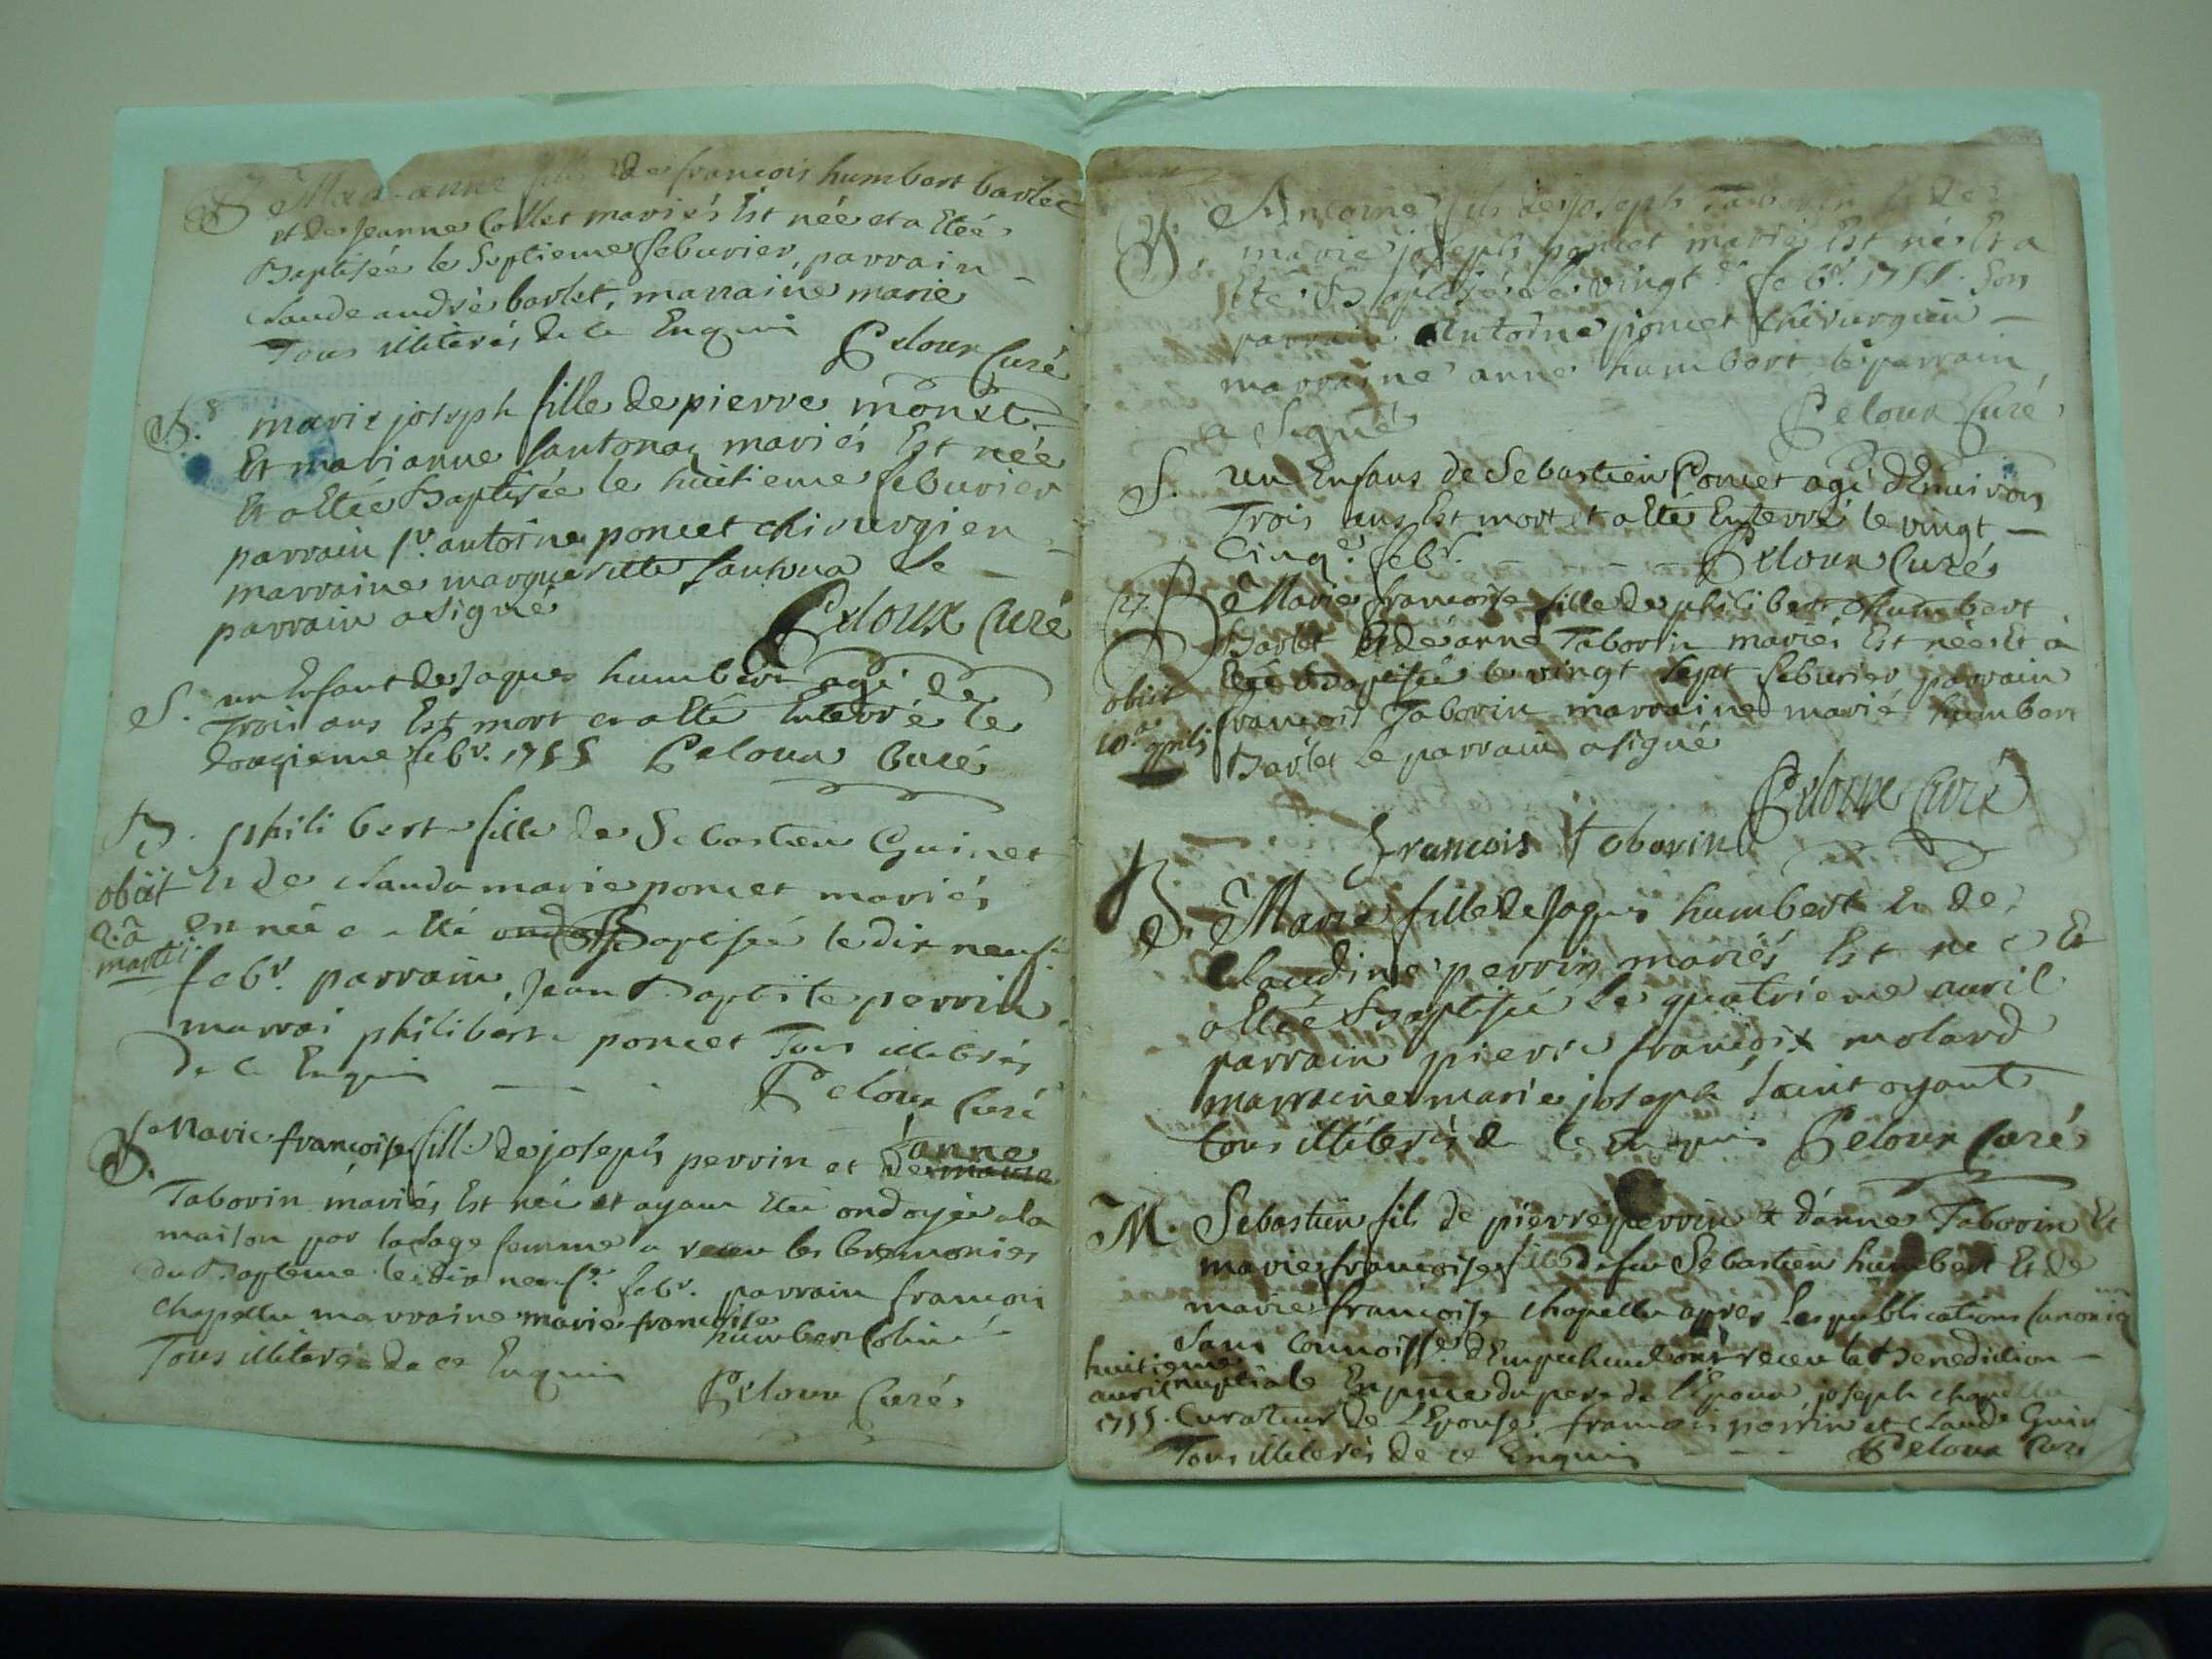 B Marianne fille de francois humbert barlet
et de Jeanne Collet mariés Est née et a Etée
Baptisée le septieme feburier, parrain
claude andré barlet, marraine marie
Tous illiterés de ce Enquis Peloux Curé
B. 8 marie joseph fille de pierre monet
Et marianne santona mariés Est née
Et a Etée Baptisée le huitieme feburier
parrain sr. antoine poncet chirurgien
marraine margueritte santona le
parrain a signé Peloux Curé
S. un Enfant de Jaques humbert agé de
Trois ans Est mort et a Eté Enterré le
febr. 1755 Peloux Curé
B. philiberte fille de Sebastien Guinet
obiit Et de clauda marie poncet mariés
2.a martii est née a été Baptisée le dix neuf
febr. parrain Jean Baptiste perrin
marrai philiberte poncet Tous illiterés
de ce Enquis Peloux Curé
B. Marie françoise fille de joseph perrin et d'anne
Taborin mariés Est née et ayant Eté ondoyée a la
maison par la sage femme a receu les Ceremonies
du Bapteme le dix neuf febr. parrain francois
chapellu marraine marie françoise
humbert
Tous illiterés de ce Enquis
Peloux Curé
B. Antoine fils de joseph Taborin et de
marie joseph poncet mariés Est né Et a
Eté Baptisé le vingt febr. 1755. son
parrain Antoine poncet chirurgien
marraine anne humbert le parrain
a signé Peloux Curé
S. un Enfans de Sebastien Poncet agé d'Environ
Trois ans Est mort et a Eté Enterré le vingt
Cinq.e febr. Peloux Curé
27. B Marie françoise fille de philibert humbert
Barlet Et de anne Taborin mariés Est née Et a
obiit Eté Baptisée le vingt sept feburier parrain
10.a aprilis françois Taborin marraine marie humbert
Barlet le parrain a signé
Peloux Curé
francois taborin
B. Marie fille de Jaques humbert Et de
claudine perrin mariés Est née Et
a Etée Baptisée le quatrieme auril
parrain pierre francoix molard
marraine marie joseph saint oyant
tous illiterés de ce Enquis Peloux Curé
M. Sebastien fils de pierre perrin & d'anne Taborin Et
marie françoise fille de feu Sebastien humbert Et de
marie françoise chapellu apres les publications canoniq
sans connoiss.e d'Empechement ont receu la Benediction
huitieme auril 1755. nuptiale En pnce du pere de l'Epoux joseph chapellu
Curateur de l'Epouse, francois perrin et claude Guin
Tous illiterés de ce Enquis Peloux Curé